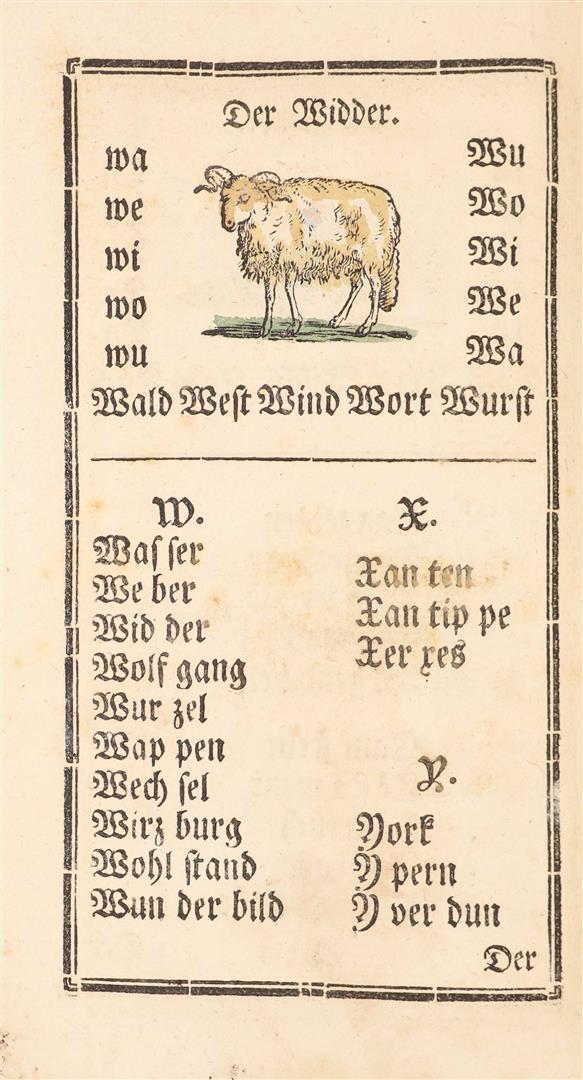 Der Widder.
wa
we
wi
wo
wu
Wu
Wo
Wi
We
Wa
Wald Weſt Wind Wort Wurſt
W.
Waſ ſer
We ber
Wid der
Wolf gang
Wur zel
Wap pen
Wech ſel
Wirz burg
Wohl ſtand
Wun der bild
X.
Xan ten
Xan tip pe
Xer xes
Y.
York
Y pern
Y ver dun
Der